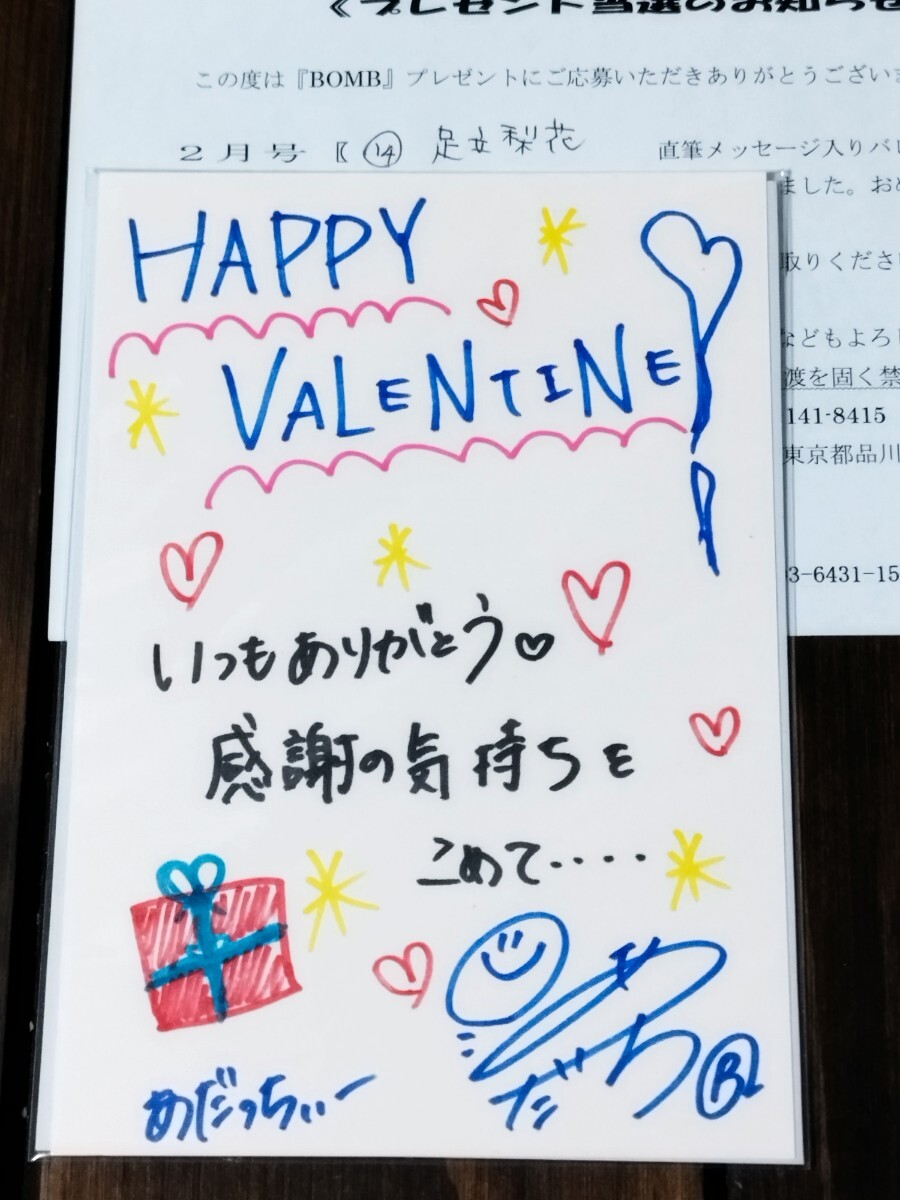 《プレゼント当選のお知らせ
この度は『BOMB』プレゼントにご応募いただきありがとうござい
2月号 〖 ⑭ 足立梨花 直筆メッセージ入りバレ
ました。おめ
取りくださ
などもよろし
渡を固く禁
141-8415
東京都品川
3-6431-15
HAPPY
VALENTINE!
いつもありがとう♡
感謝の気持ちを
こめて‥‥
めだっちぃー